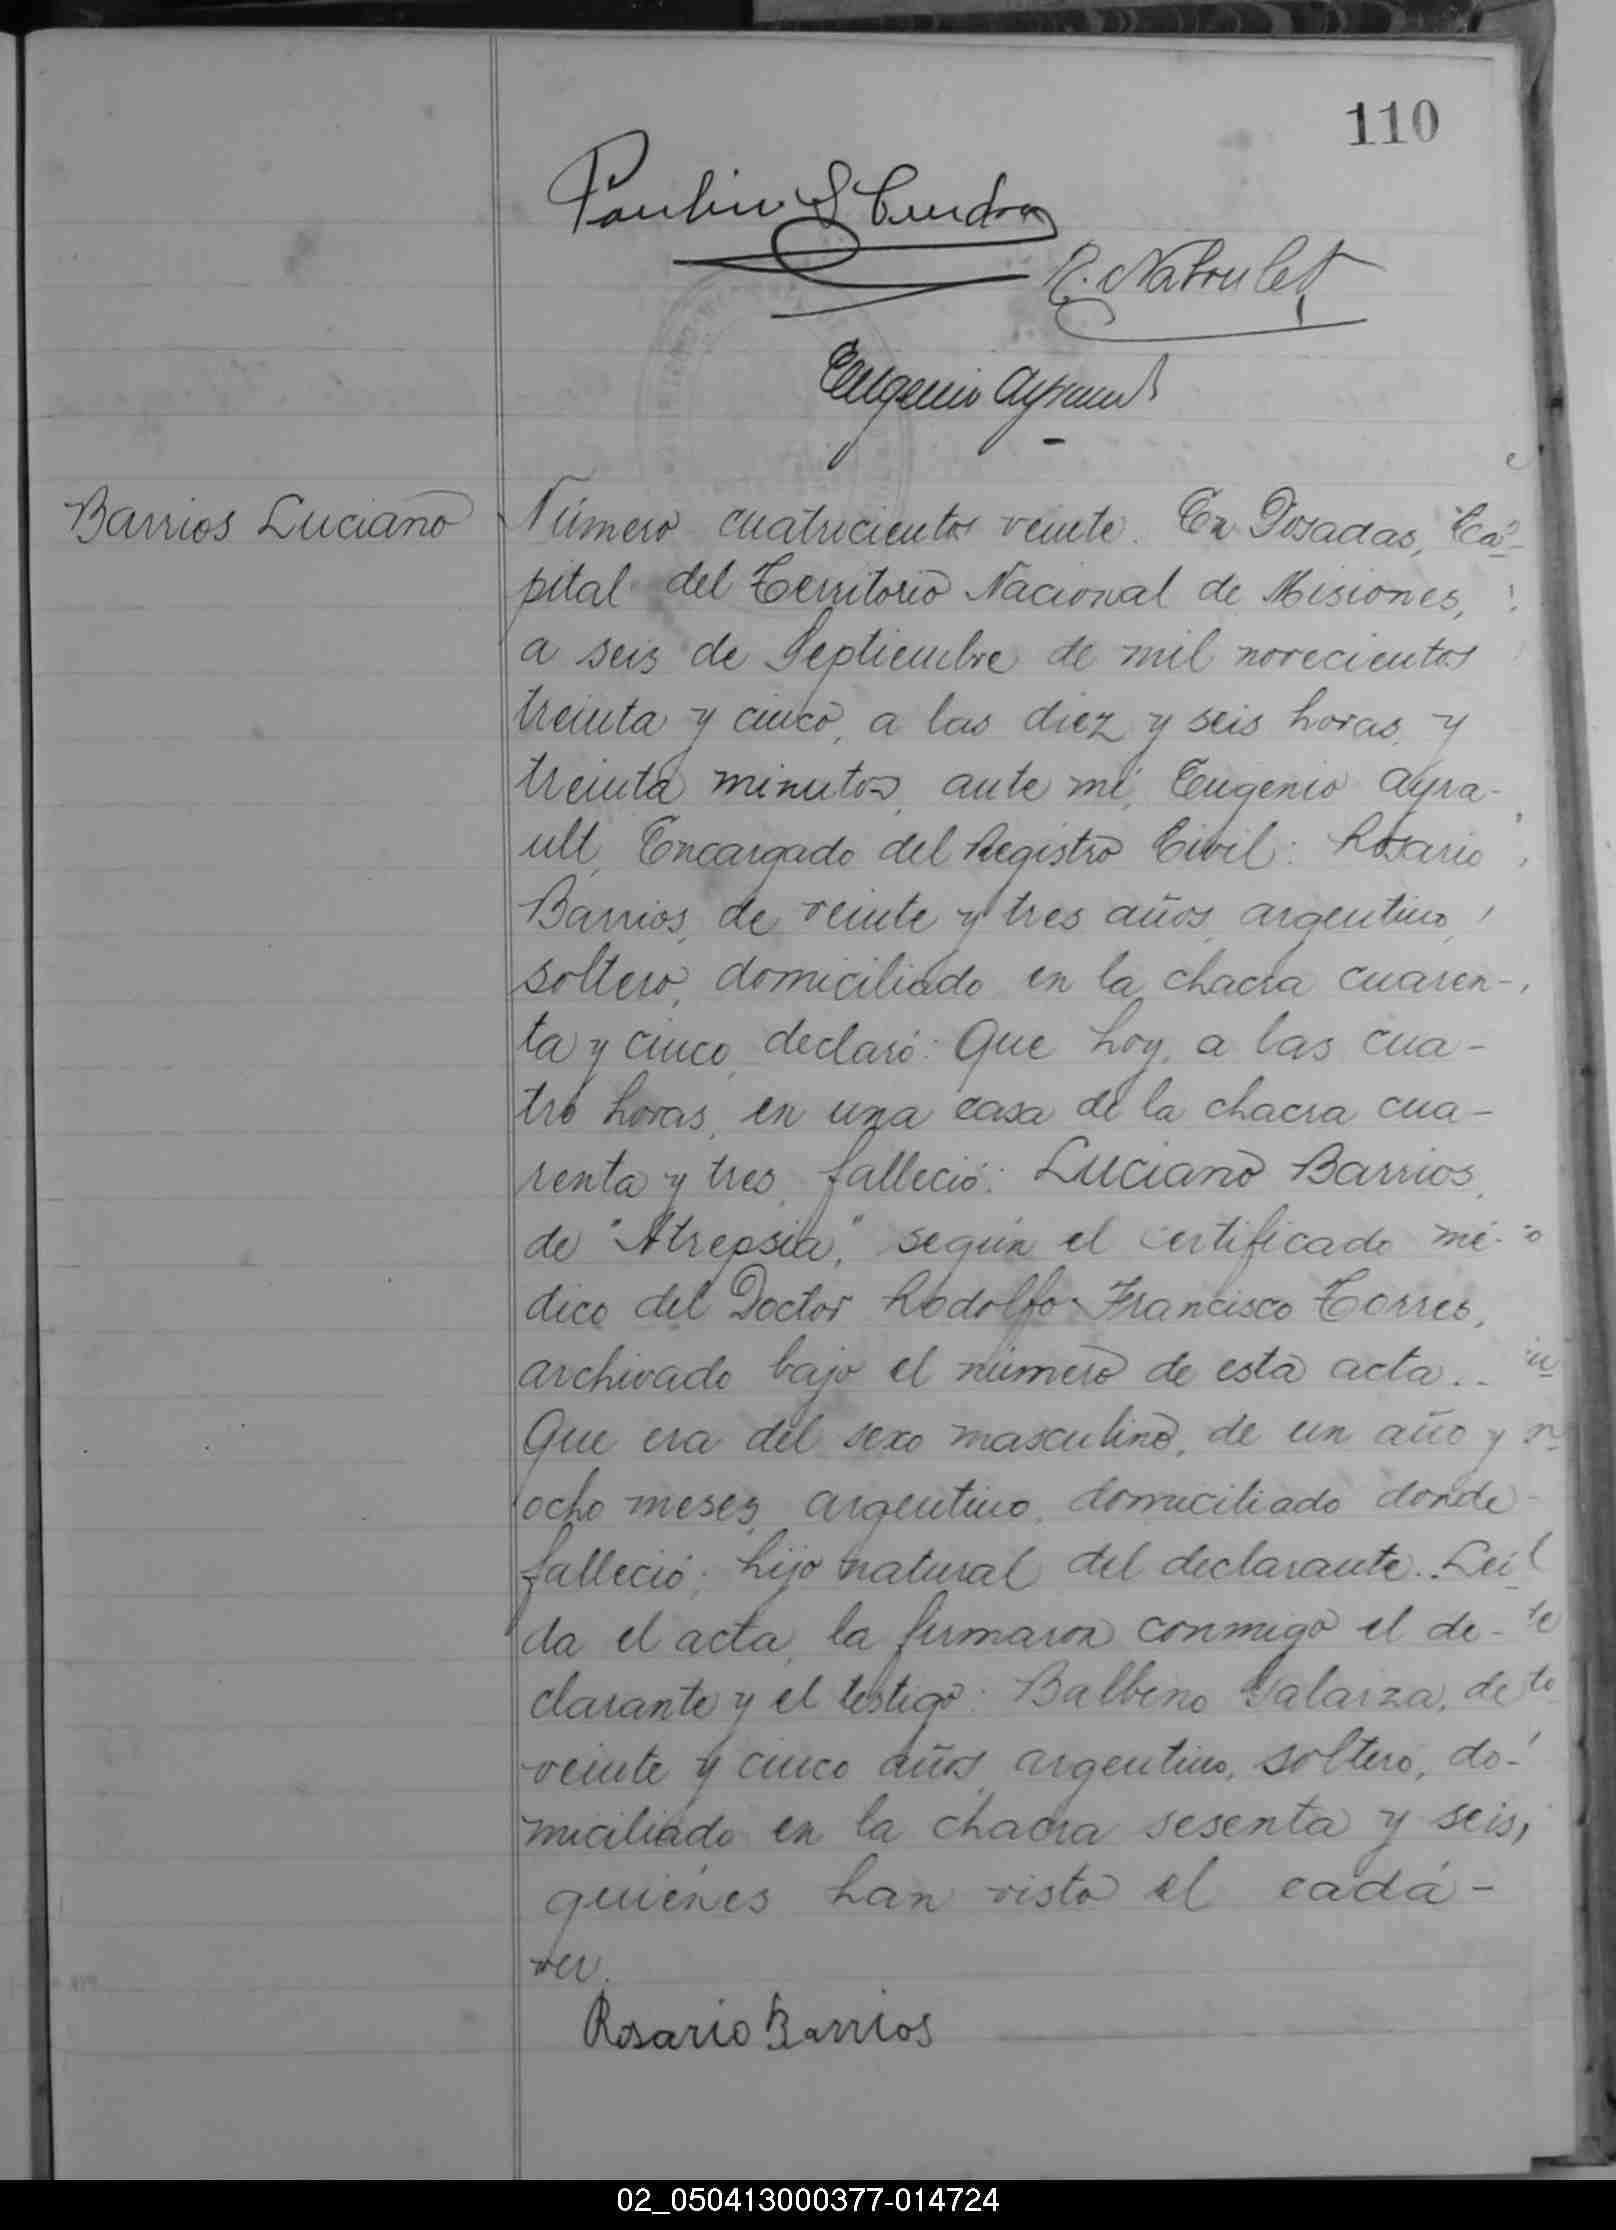 110
R. Nabrulet
Eugenio Ayrault
Barrios Luciano
Número cuatrocientos veinte. En Posadas, Ca-
pital del Territorio Nacional de Misiones,
a seis de Septiembre de mil novecientos
treinta y cinco, a las diez y seis horas y
treinta minutos, ante mí, Eugenio Ayra-
ult, Encargado del Registro Civil: Rosario
Barrios, de veinte y tres años, argentino,
soltero, domiciliado en la chacra cuaren-
ta y cinco, declaró: Que hoy, a las cua-
tro horas, en una casa de la chacra cua-
renta y tres, falleció: Luciano Barrios,
de "Atrepsia," según el certificado mé-
dico del Doctor Rodolfo Francisco Torres,
archivado bajo el número de esta acta..
Que era del sexo masculino, de un año y
ocho meses, argentino, domiciliado donde
falleció; hijo natural del declarante.. Leí-
da el acta, la firmaron conmigo el de-
clarante y el testigo: Balbino Galarza, de
veinte y cinco años, argentino, soltero, do-
miciliado en la chacra sesenta y seis,
quiénes han visto el cadá-
ver.
Rosario Barrios
02_050413000377-014724